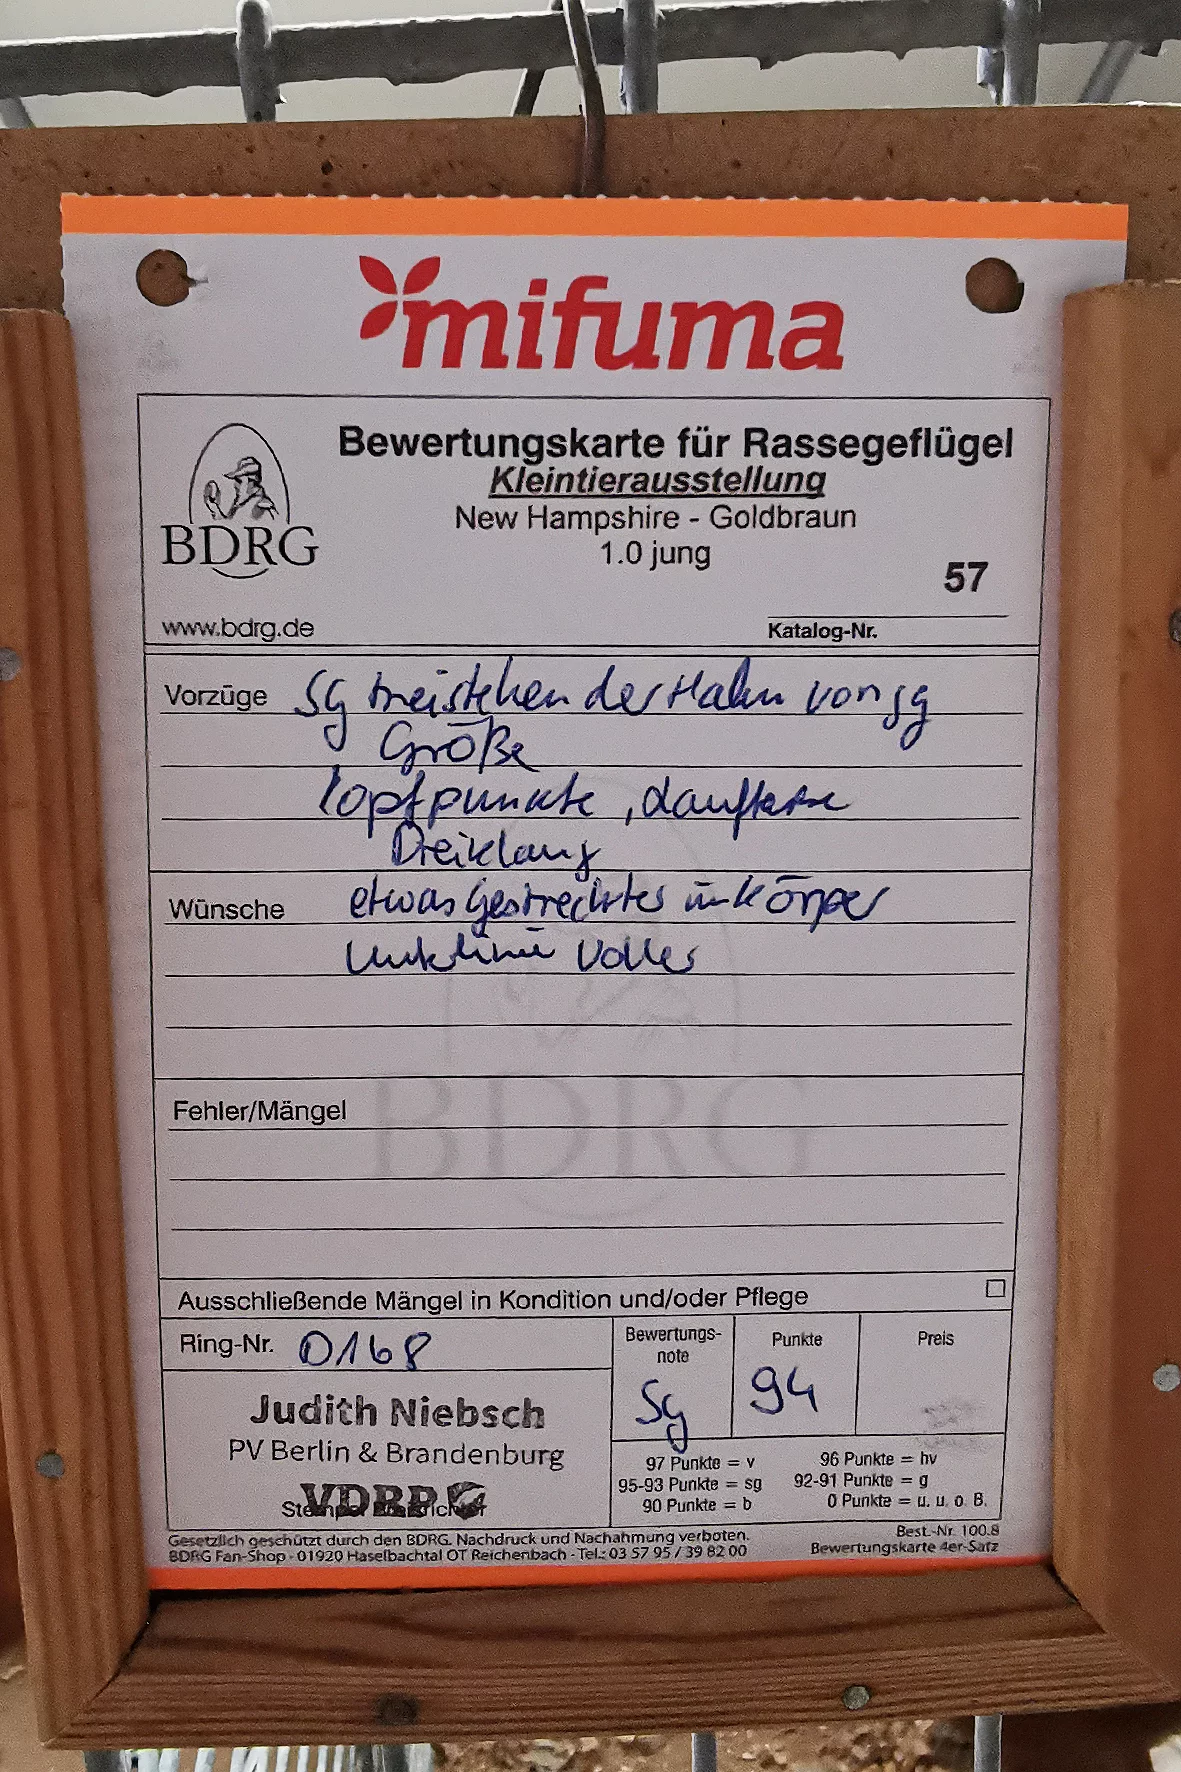 mifuma
Bewertungskarte für Rassegeflügel
Kleintierausstellung
New Hampshire - Goldbraun
1.0 jung
BDRG
57
www.bdrg.de
Katalog-Nr.
Vorzüge Sg freistehender Hahn von sg
Größe
Kopfpunkte, Lauffarbe
Dreiklang
Wünsche etwas gestreckter im Körper
voller
BDRG
Fehler/Mängel
Ausschließende Mängel in Kondition und/oder Pflege
Ring-Nr. 0168
Bewertungs-
note
Sg
Punkte
94
Preis
Judith Niebsch
PV Berlin & Brandenburg
VDRP
97 Punkte = v 96 Punkte = hv
95-93 Punkte = sg 92-91 Punkte = g
90 Punkte = b 0 Punkte = u. u. o. B.
Gesetzlich geschützt durch den BDRG. Nachdruck und Nachahmung verboten.
BDRG Fan-Shop · 01920 Haselbachtal OT Reichenbach · Tel.: 03 57 95 / 39 82 00
Best.-Nr. 100.8
Bewertungskarte 4er-Satz